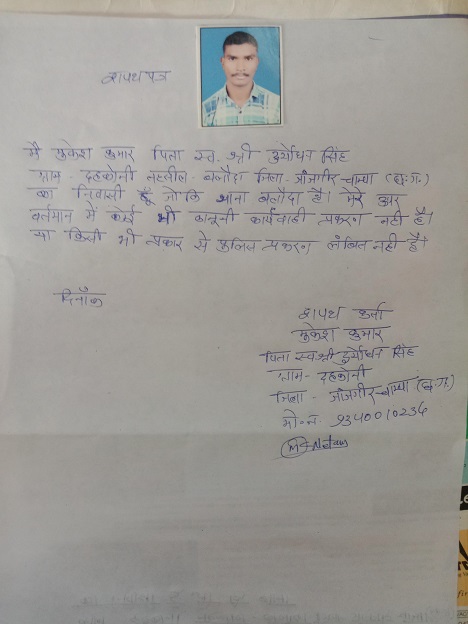 शपथ पत्र
मै मुकेश कुमार पिता स्व. श्री दुर्योधन सिंह
ग्राम - दहकोनी तहसील - बलौदा जिला - जांजगीर-चाम्पा (छ.ग.)
का निवासी हूँ जोकि थाना बलौदा है। मेरे उपर
वर्तमान में कोई भी कानूनी कार्यवाही प्रकरण नही है।
या किसी भी प्रकार से पुलिस प्रकरण लंबित नही है।
दिनाँक
शपथ कर्ता
मुकेश कुमार
पिता स्व श्री दुर्योधन सिंह
ग्राम - दहकोनी
जिला - जांजगीर-चाम्पा (छ.ग.)
मो०न. 9340010236